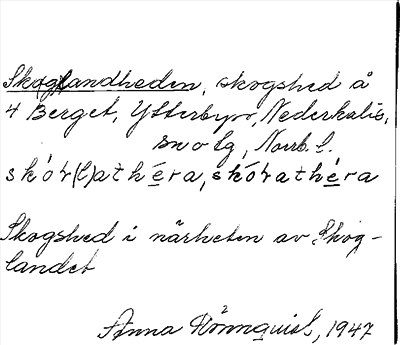 Skog(s)landheden, skogshed å
4 Berget, Ytterbyn, Nederkalix,
sn o lg, Norrb. l.
skór(l)athéra, skórathéra
Skogshed i närheten av Skog-
landet
Anna Hörnquist, 1947